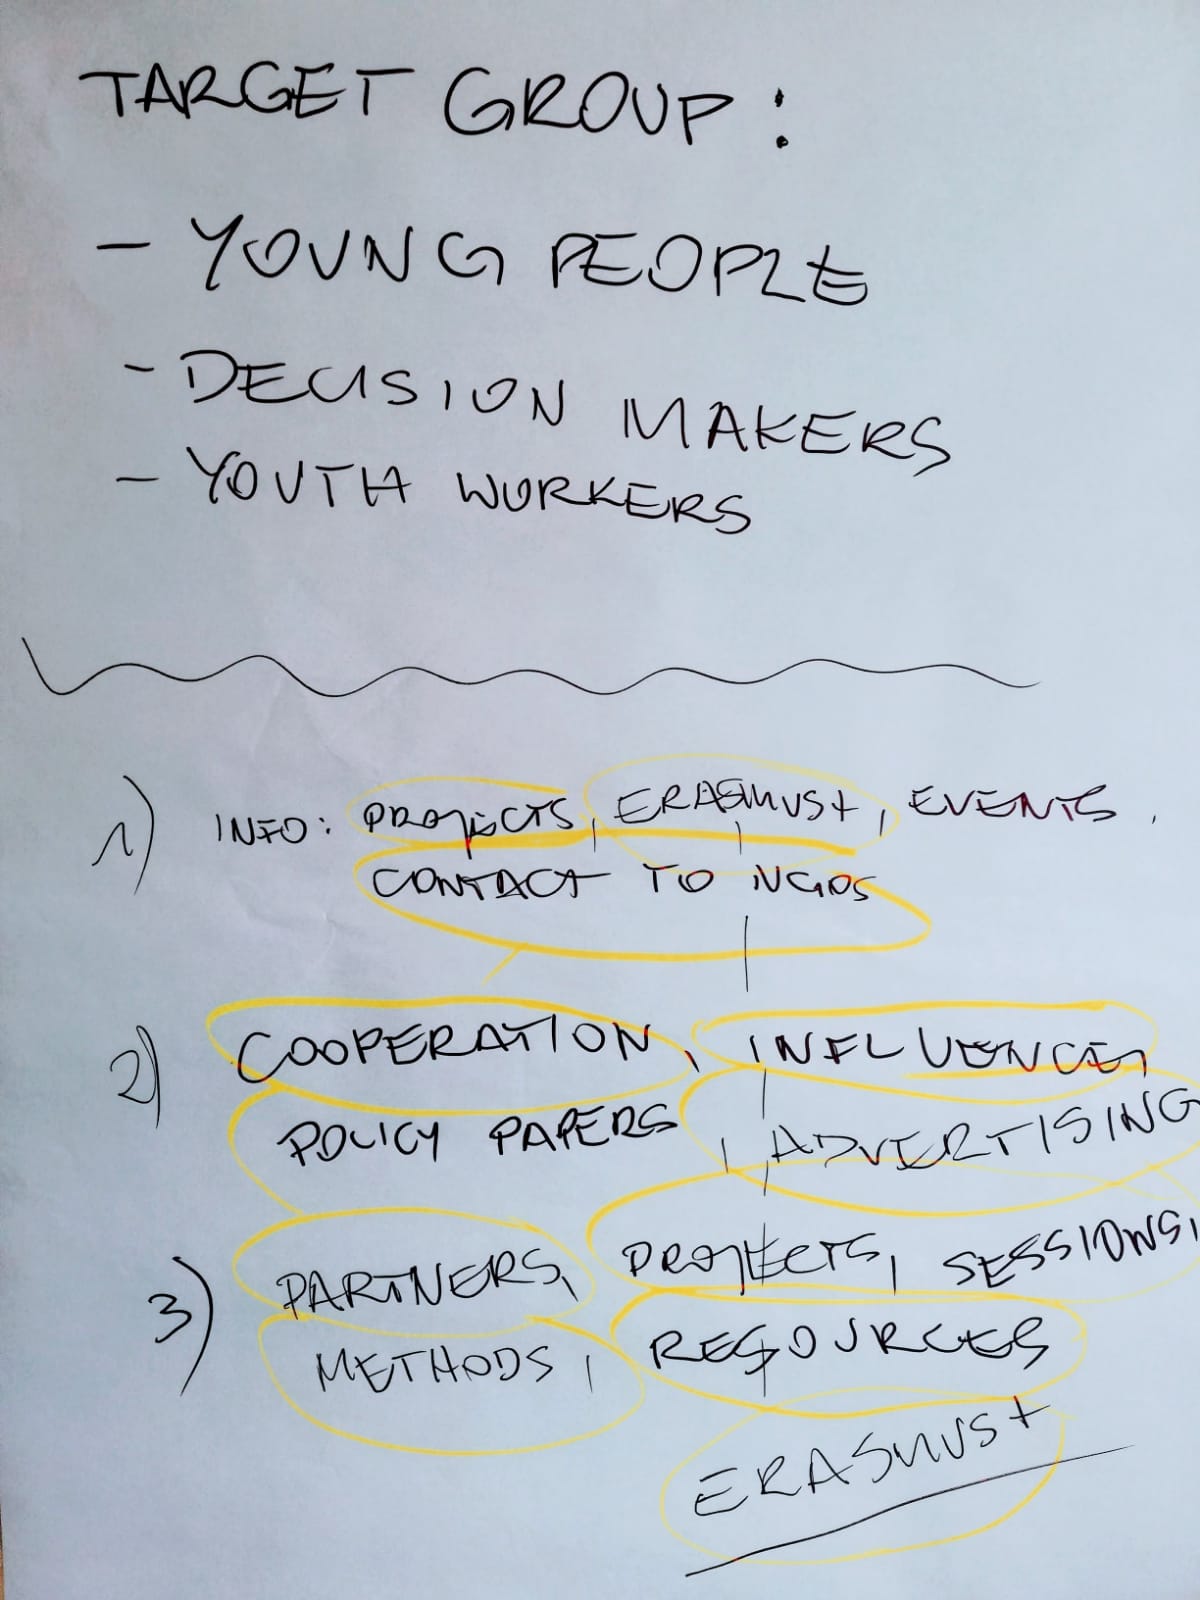 TARGET GROUP:
- YOUNG PEOPLE
- DECISION MAKERS
- YOUTH WORKERS
1) INFO: PROJECTS, ERASMUS+, EVENTS,
CONTACT TO NGOS
2) COOPERATION, INFLUENCE,
POLICY PAPERS, ADVERTISING
3) PARTNERS, PROJECTS, SESSIONS,
METHODS, RESOURCES
ERASMUS+